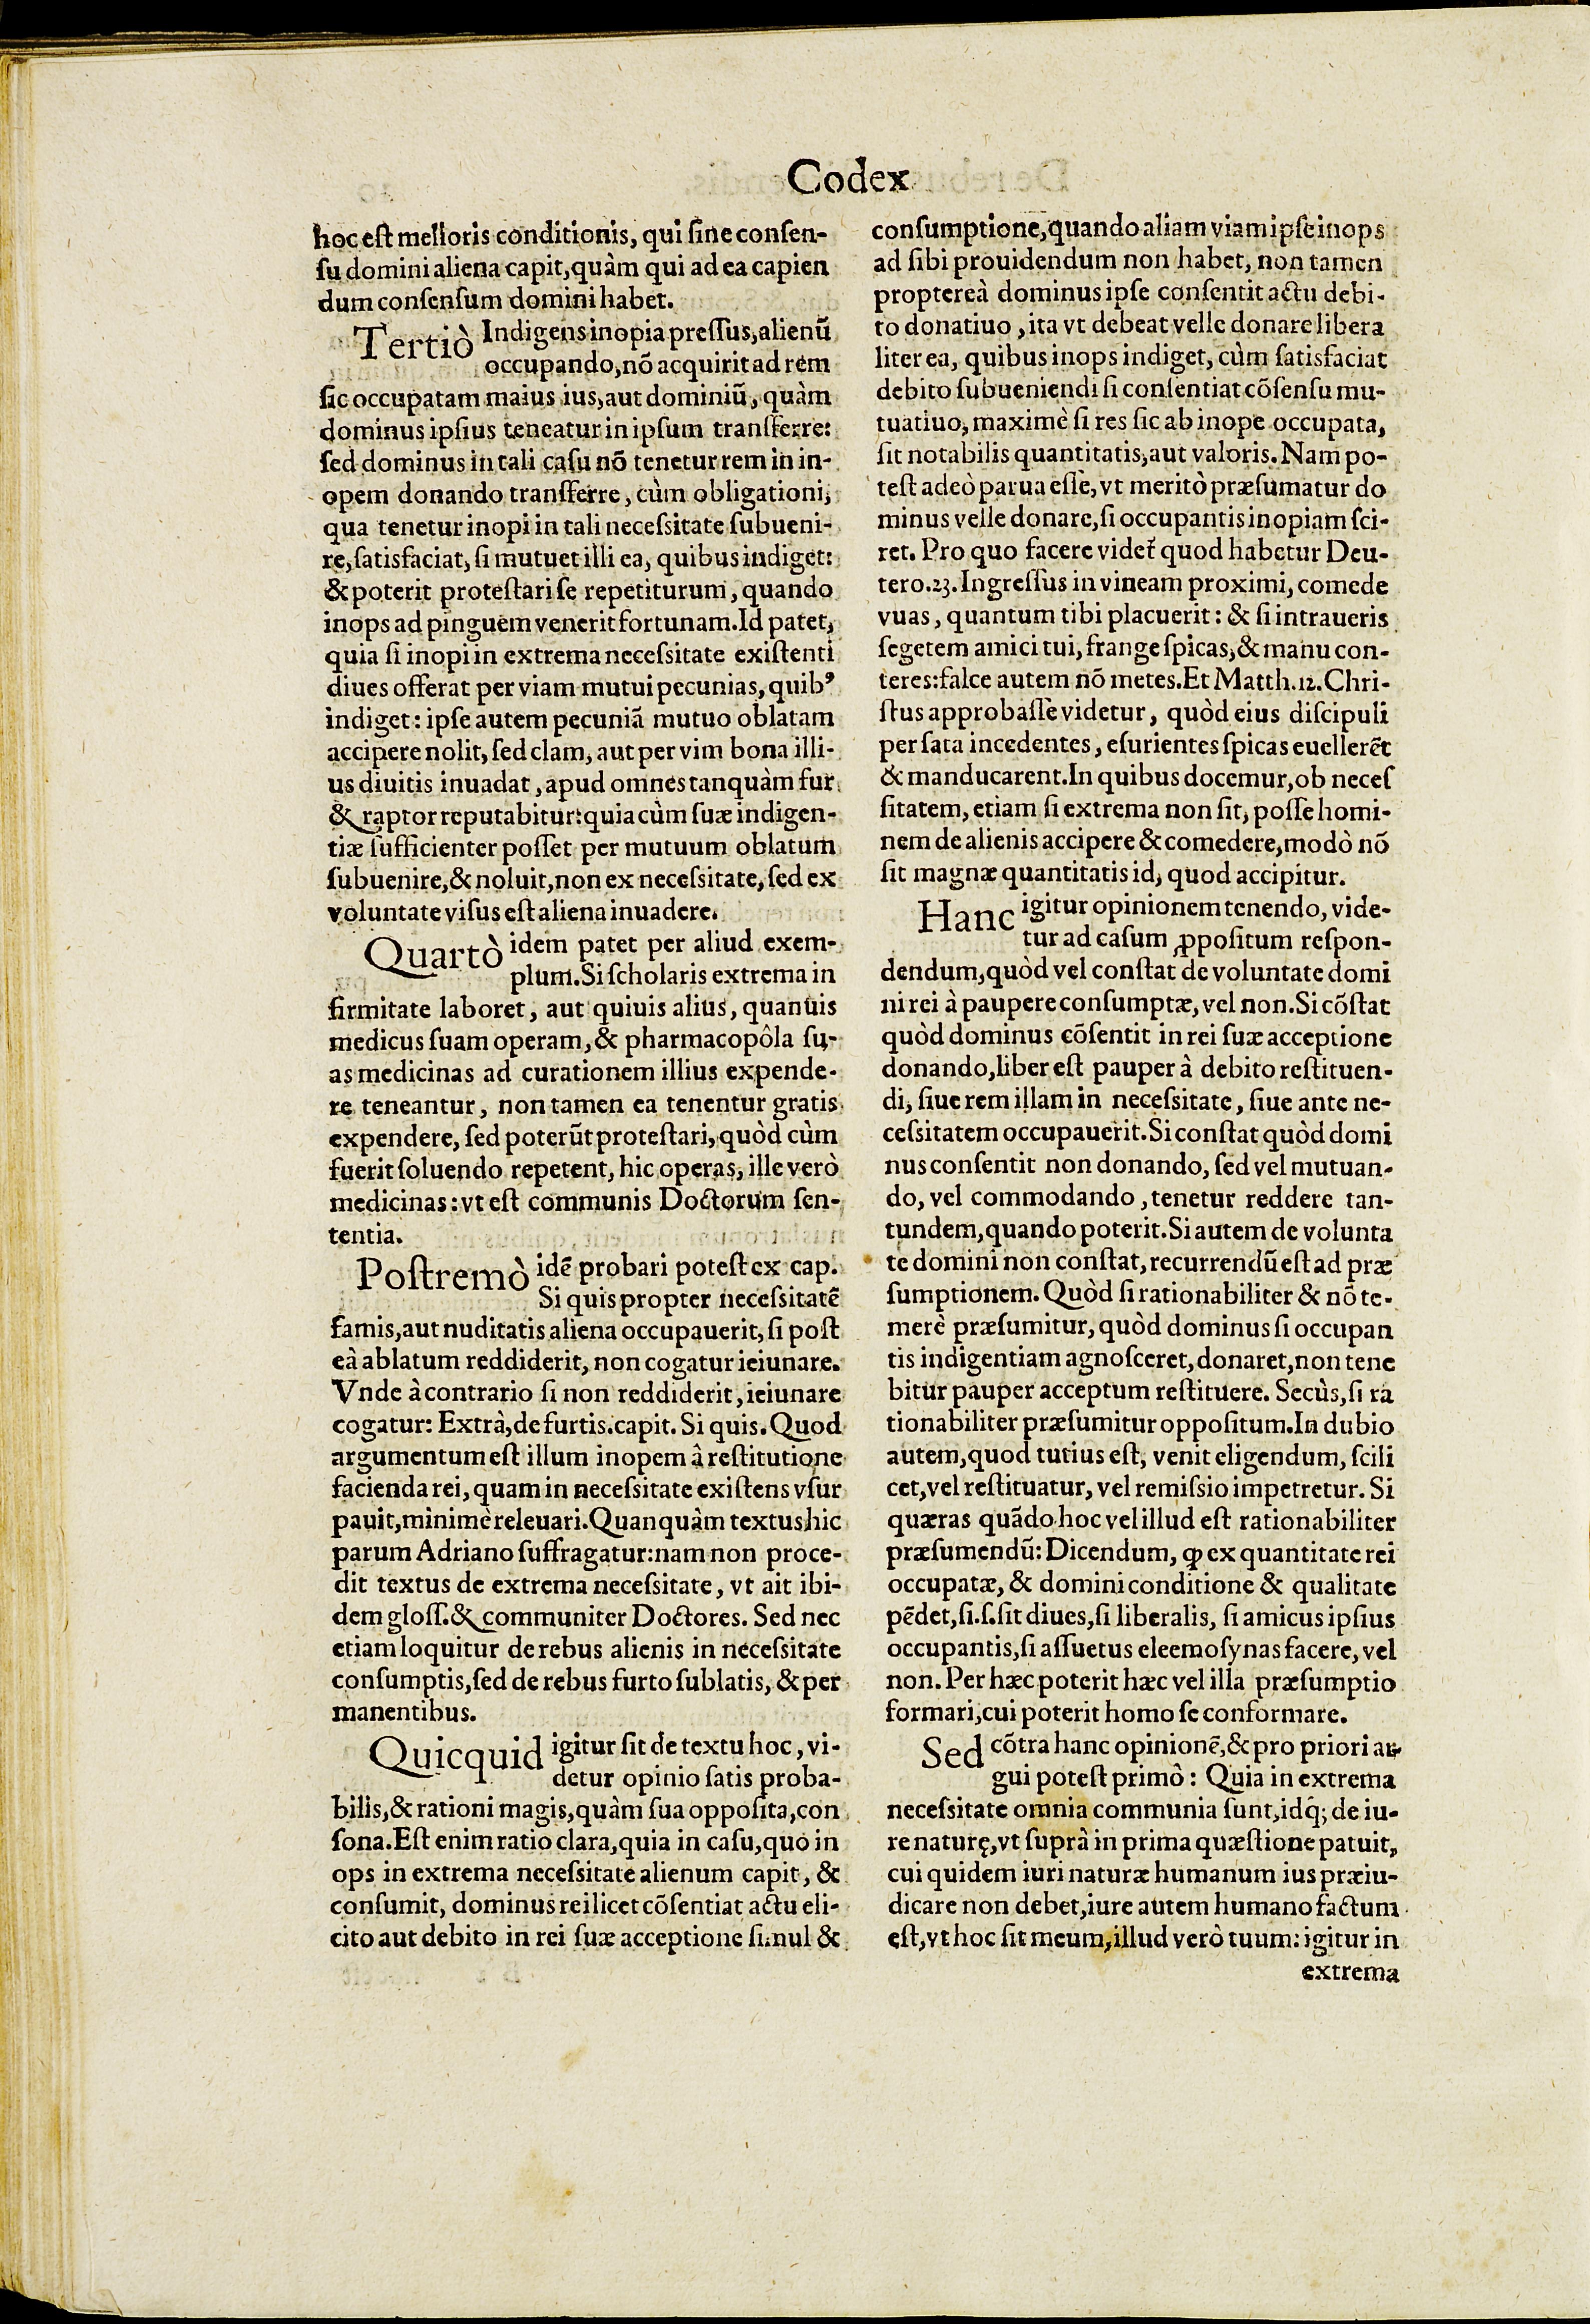 Codex
hoc est melioris conditionis, qui sine consen-
su domini aliena capit, quàm qui ad ea capien
dum consensum domini habet.
Tertiò Indigens inopia pressus, alienũ
occupando, nõ acquirit ad rem
sic occupatam maius ius, aut dominiũ, quàm
dominus ipsius teneatur in ipsum transferre:
sed dominus in tali casu nõ tenetur rem in in-
opem donando transferre, cùm obligationi,
qua tenetur inopi in tali necessitate subueni-
re, satisfaciat, si mutuet illi ea, quibus indiget:
& poterit protestari se repetiturum, quando
inops ad pinguem venerit fortunam. Id patet,
quia si inopi in extrema necessitate existenti
diues offerat per viam mutui pecunias, quibꝰ
indiget: ipse autem pecuniã mutuo oblatam
accipere nolit, sed clam, aut per vim bona illi-
us diuitis inuadat, apud omnes tanquàm fur
& raptor reputabitur: quia cùm suæ indigen-
tiæ sufficienter posset per mutuum oblatum
subuenire, & noluit, non ex necessitate, sed ex
voluntate visus est aliena inuadere.
Quartò idem patet per aliud exem-
plum. Si scholaris extrema in
firmitate laboret, aut quiuis alius, quanuis
medicus suam operam, & pharmacopôla su-
as medicinas ad curationem illius expende-
re teneantur, non tamen ea tenentur gratis
expendere, sed poterũt protestari, quòd cùm
fuerit soluendo repetent, hic operas, ille verò
medicinas: vt est communis Doctorum sen-
tentia.
Postremò idẽ probari potest ex cap.
Si quis propter necessitatẽ
famis, aut nuditatis aliena occupauerit, si post
eà ablatum reddiderit, non cogatur ieiunare.
Vnde à contrario si non reddiderit, ieiunare
cogatur: Extrà, de furtis. capit. Si quis. Quod
argumentum est illum inopem â restitutione
facienda rei, quam in necessitate existens vsur
pauit, mìnimè releuari. Quanquàm textus hic
parum Adriano suffragatur: nam non proce-
dit textus de extrema necessitate, vt ait ibi-
dem gloss. & communiter Doctores. Sed nec
etiam loquitur de rebus alienis in necessitate
consumptis, sed de rebus furto sublatis, & per
manentibus.
Quicquid igitur sit de textu hoc, vi-
detur opinio satis proba-
bilis, & rationi magis, quàm sua opposita, con
sona. Est enim ratio clara, quia in casu, quo in
ops in extrema necessitate alienum capit, &
consumit, dominus rei licet cõsentiat actu eli-
cito aut debito in rei suæ acceptione simul &
consumptione, quando aliam viam ipse inops
ad sibi prouidendum non habet, non tamen
proptereà dominus ipse consentit actu debi-
to donatiuo, ita vt debeat velle donare libera
liter ea, quibus inops indiget, cùm satisfaciat
debito subueniendi si consentiat cõsensu mu-
tuatiuo, maximè si res sic ab inope occupata,
sit notabilis quantitatis, aut valoris. Nam po-
test adeò parua esse, vt meritò præsumatur do
minus velle donare, si occupantis inopiam sci-
ret. Pro quo facere videt̃ quod habetur Deu-
tero. 23. Ingressus in vineam proximi, comede
vuas, quantum tibi placuerit: & si intraueris
segetem amici tui, frange spicas, & manu con-
teres: falce autem nõ metes. Et Matth. 12. Chri-
stus approbasse videtur, quòd eius discipuli
per sata incedentes, esurientes spicas euellerẽt
& manducarent. In quibus docemur, ob neces
sitatem, etiam si extrema non sit, posse homi-
nem de alienis accipere & comedere, modò nõ
sit magnæ quantitatis id, quod accipitur.
Hanc igitur opinionem tenendo, vide-
tur ad casum ꝓpositum respon-
dendum, quòd vel constat de voluntate domi
ni rei à paupere consumptæ, vel non. Si cõstat
quòd dominus cõsentit in rei suæ acceptione
donando, liber est pauper à debito restituen-
di, siue rem illam in necessitate, siue ante ne-
cessitatem occupauerit. Si constat quòd domi
nus consentit non donando, sed vel mutuan-
do, vel commodando, tenetur reddere tan-
tundem, quando poterit. Si autem de volunta
te domini non constat, recurrendũ est ad præ
sumptionem. Quòd si rationabiliter & nõ te-
merè præsumitur, quòd dominus si occupan
tis indigentiam agnosceret, donaret, non tene
bitur pauper acceptum restituere. Secùs, si ra
tionabiliter præsumitur oppositum. In dubio
autem, quod tutius est, venit eligendum, scili
cet, vel restituatur, vel remissio impetretur. Si
quæras quãdo hoc vel illud est rationabiliter
præsumendũ: Dicendum, ꝙ ex quantitate rei
occupatæ, & domini conditione & qualitate
pẽdet, si. s. sit diues, si liberalis, si amicus ipsius
occupantis, si assuetus eleemosynas facere, vel
non. Per hæc poterit hæc vel illa præsumptio
formari, cui poterit homo se conformare.
Sed cõtra hanc opinionẽ, & pro priori ar-
gui potest primò: Quia in extrema
necessitate omnia communia sunt, idq̃; de iu-
re naturę, vt suprâ in prima quæstione patuit,
cui quidem iuri naturæ humanum ius præiu-
dicare non debet, iure autem humano factum
est, vt hoc sit meum, illud verò tuum: igitur in
extrema